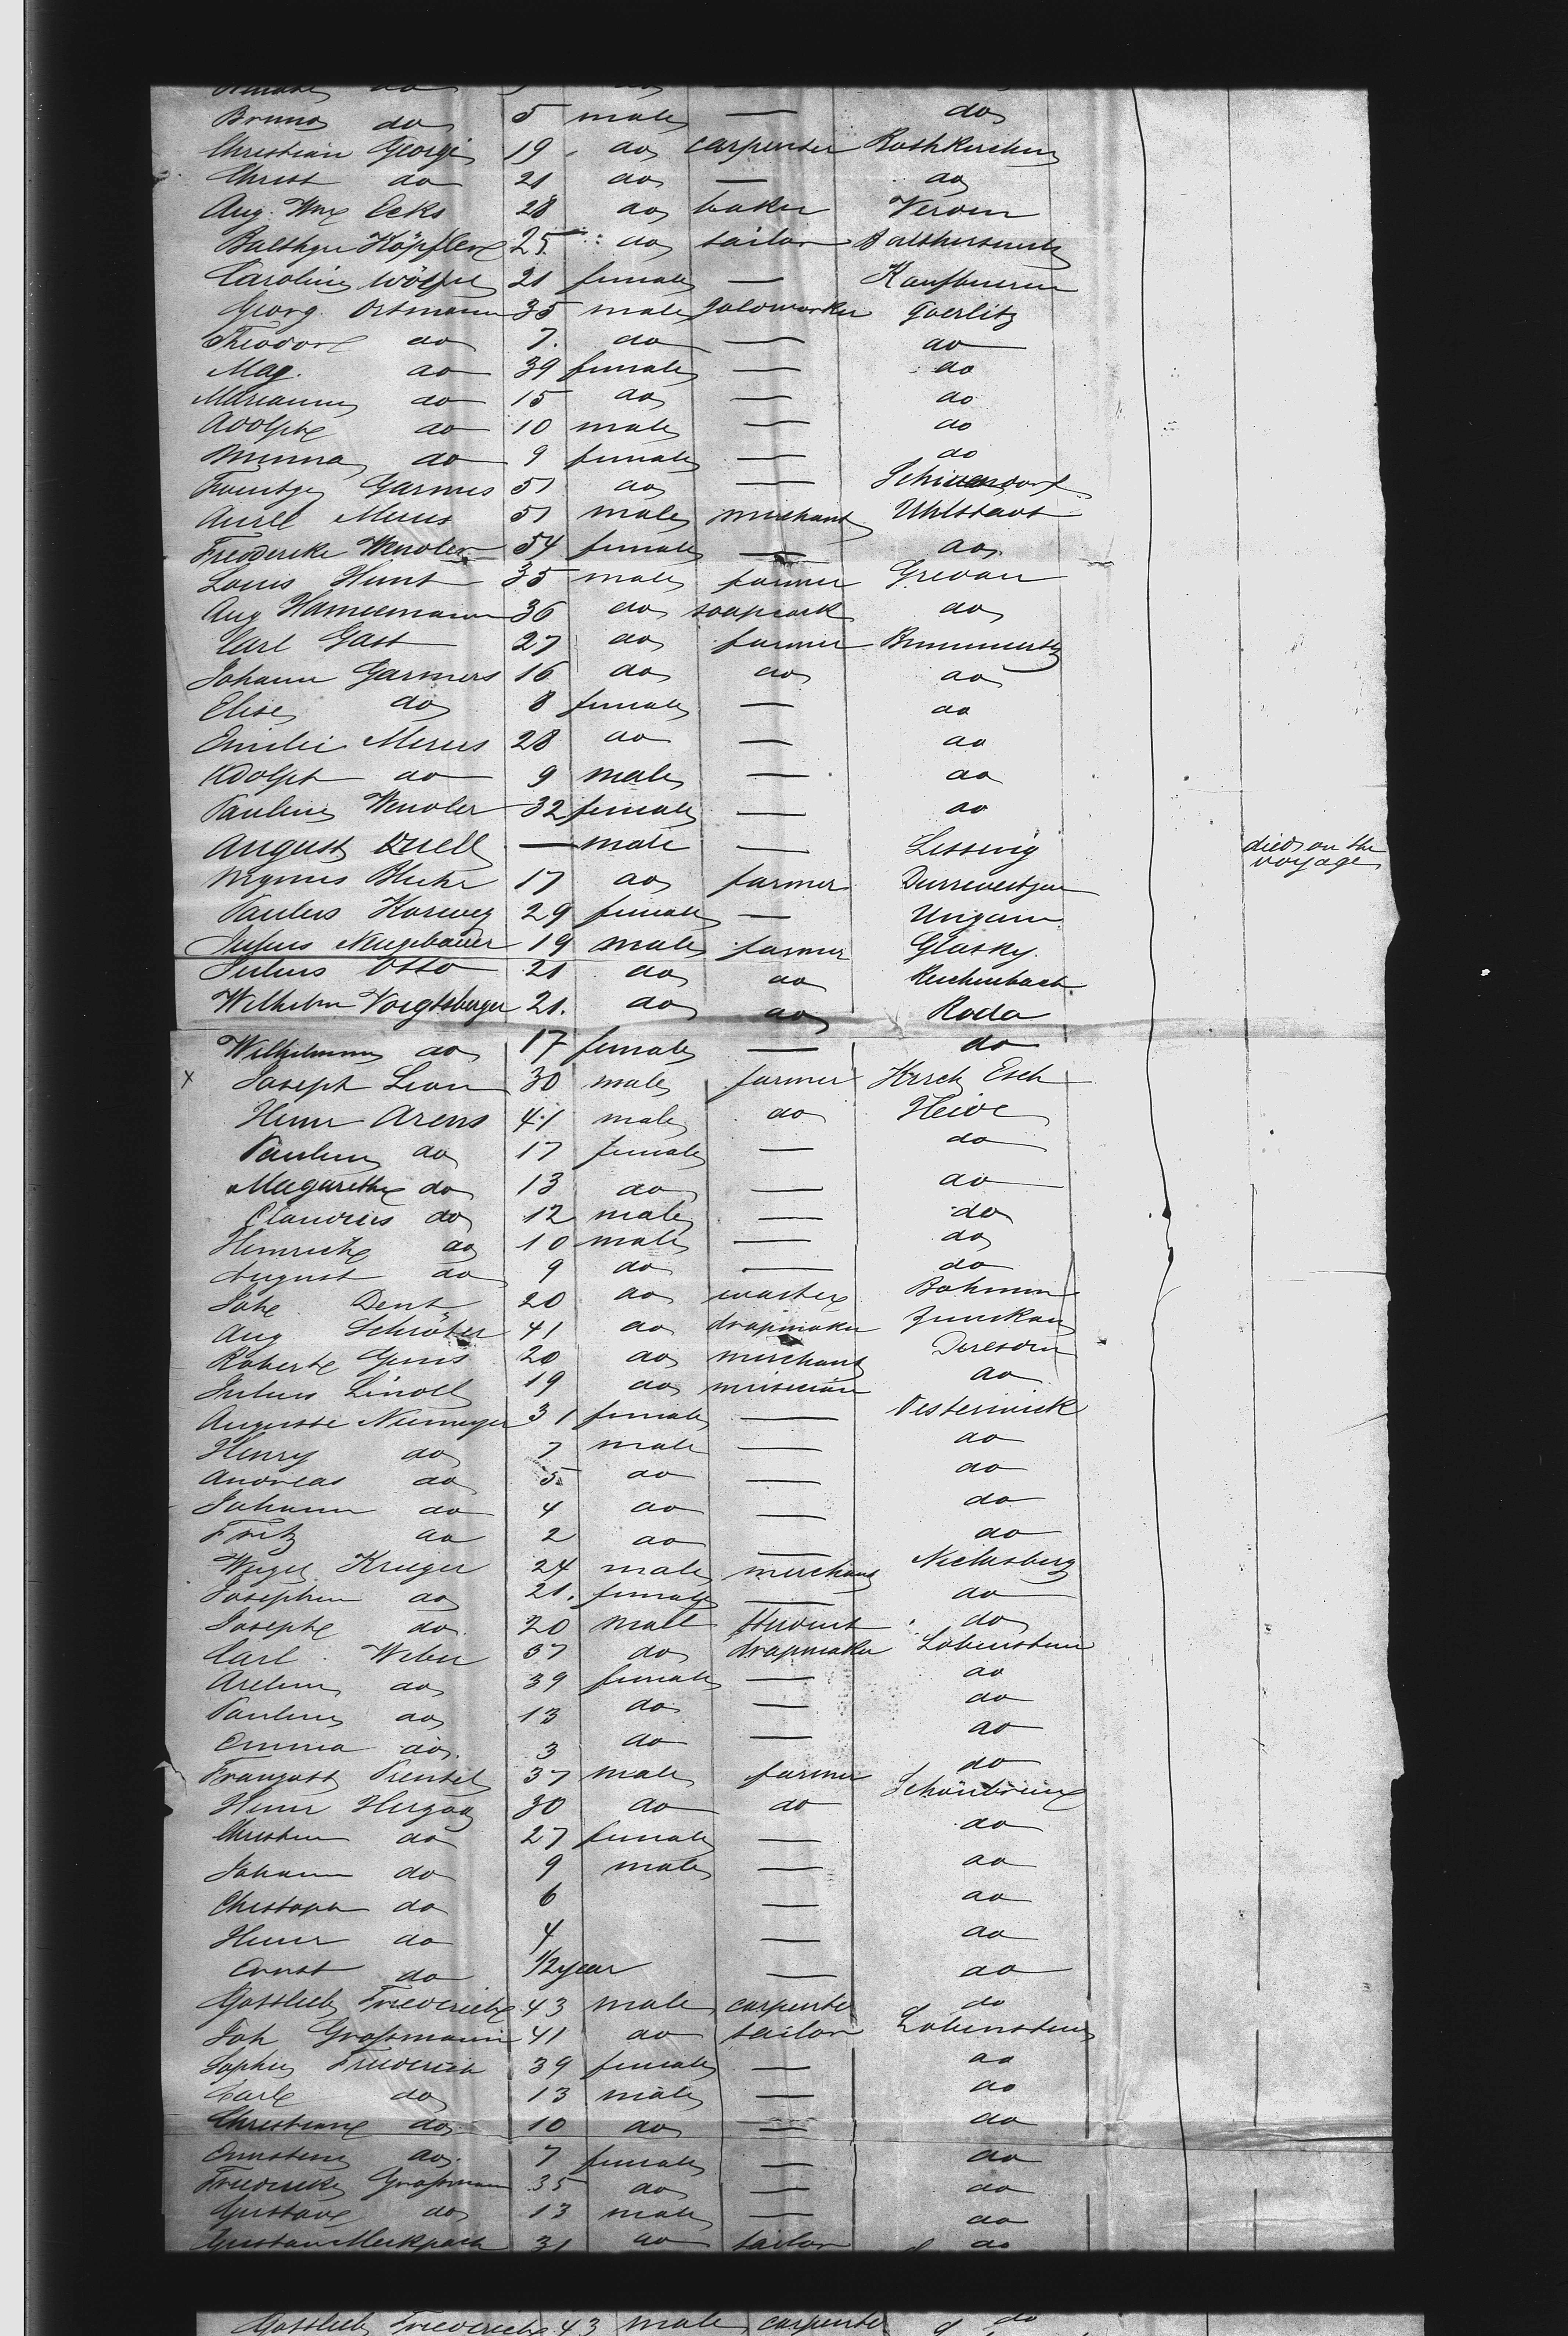 Bruno do 5 male — do
Christian Georgi 19 do carpenter Rothkirchen
Christ do 21 do — do
Aug. Wm Ecks 28 do baker Verden
Balthger Höpfler 25 do tailor
Caroline Wölfel 21 female — Kaufbeuren
Georg Ortmann 35 male goldworker Goerlitz
Theodor do 7. do — do
Mag. do 39 female — do
Marianne do 15 do — do
Adolph do 10 male — do
Minna do 9 female — do
Garmes 51 do —
Aurel Merus 51 male merchant Uhlstadt
Frederike Wendler 54 female — do
Louis Hunt 35 male farmer Gredau
Aug Hannemann 36 do do
Carl Gast 27 do farmer
Johann Garmers 16 do do do
Elise do 8 female — do
Emilie Merus 28 do — do
Adolph do 9 male — do
Pauline Wendler 32 female — do
August Quell — male — Lessing died on the
voyage
17 do farmer
Paulus 29 female — Ungarn
Julius Neugebauer 19 male farmer Glasky.
Julius Otto 21 do do Reichenbach.
Wilhelm Voigtsberger 21. do do Roda
Wilhelmine do 17 female — do
x Joseph Leon 30 male farmer Hirsch Esch
Henr Arens 41 male do Heide
Pauline do 17 female — do
Magarethe do 13 do — do
Claudius do 12 male — do
Heinrich do 10 male — do
August do 9 do — do
Joh. Dent 20 do Bohmen
Aug Schröter 41 do drapmaker
Robert 20 do merchant Dresden
Julius Lindel 19 do musician do
Auguste Niemeyer 31 female — Osterwick
Henry do 7 male — do
Andreas do 5 do — do
Johann do 4 do — do
Fritz do 2 do — do
Krueger 24 male merchant Niclasberg
Josephin do 21. female — do
Joseph do 20 male student do
Carl Weber 37 do drapmaker Lobenstein
do 39 female — do
Pauline do 13 do — do
Emma do. 3 do — do
Traugott Prentzel 37 male farmer do
Henr Herzog 30 do do
Christin do 27 female — do
Johann do 9 male — do
Christoph do 6 — do
Henr do 4 — do
Ernst do 1/2 year — do
Gottlieb Friederich 43 male carpenter do
Joh Großmann 41 do tailor Lobenstein
Sophie Friederich 39 female — do
Carl do 13 male — do
Christian do 10 do — do
Ernestine do. 7 female — do
Friederike Großmann 35 do — do
Gustav do 13 male — do
Gustav Merkpach 31 do tailor do
Gottlieb Friederich 43 male carpenter do